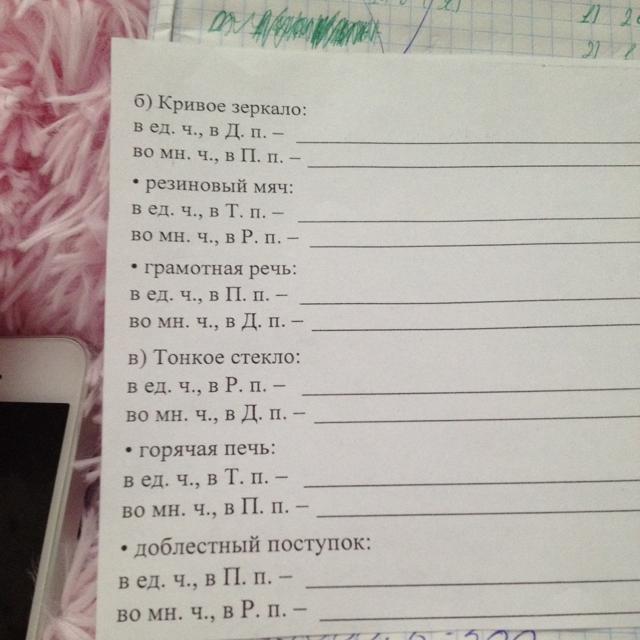 б) Кривое зеркало:
в ед. ч., в Д. п. –
во мн. ч., в П. п. –
• резиновый мяч:
в ед. ч., в Т. п. –
во мн. ч., в Р. п. –
• грамотная речь:
в ед. ч., в П. п. –
во мн. ч., в Д. п. –
в) Тонкое стекло:
в ед. ч., в Р. п. –
во мн. ч., в Д. п. –
• горячая печь:
в ед. ч., в Т. п. –
во мн. ч., в П. п. –
• доблестный поступок:
в ед. ч., в П. п. –
во мн. ч., в Р. п. –